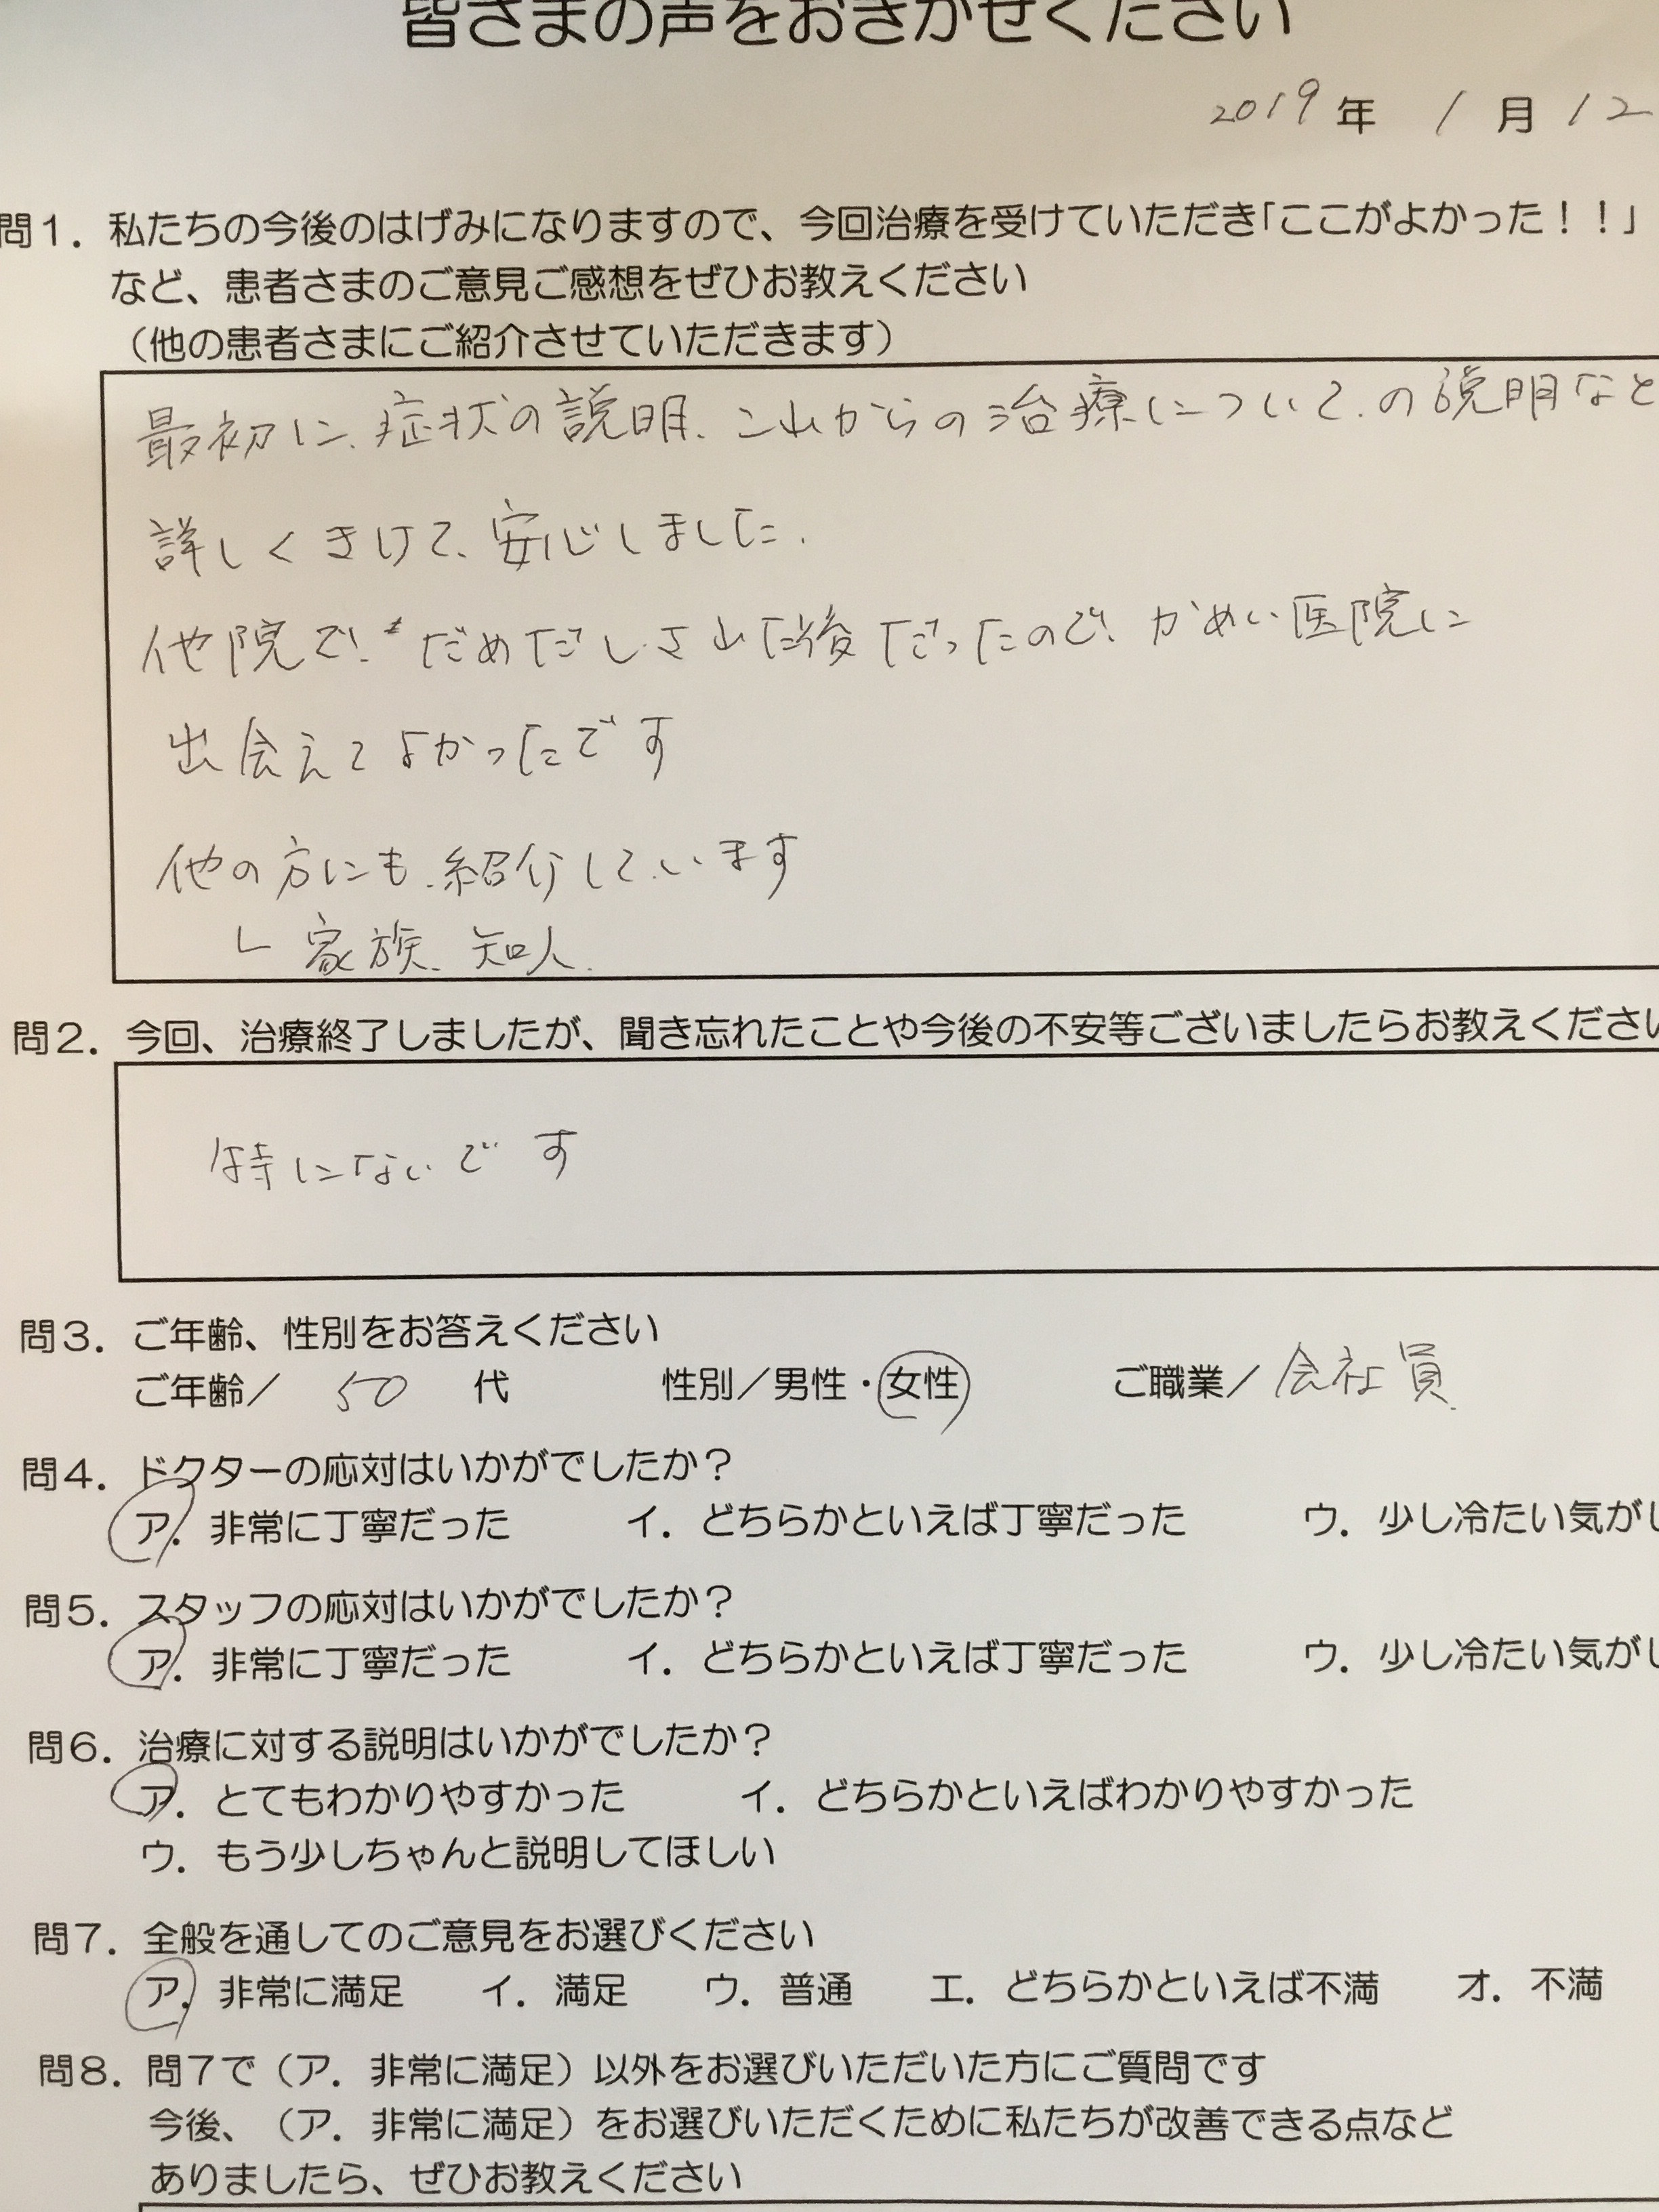 皆さまの声をおきかせください
2019年 1月12
問1．私たちの今後のはげみになりますので、今回治療を受けていただき「ここがよかった！！」
など、患者さまのご意見ご感想をぜひお教えください
（他の患者さまにご紹介させていただきます）
最初に、症状の説明、これからの治療について、の説明など
詳しくきけて、安心しました.
他院で、だめだしされた後だったので、かめい医院に
出会えてよかったです
他の方にも、紹介しています
└ 家族、知人.
問2．今回、治療終了しましたが、聞き忘れたことや今後の不安等ございましたらお教えください
特にないです
問3．ご年齢、性別をお答えください
ご年齢／ 50 代 性別／男性・女性 ご職業／会社員
問4．ドクターの応対はいかがでしたか？
ア．非常に丁寧だった イ．どちらかといえば丁寧だった ウ．少し冷たい気がし
問5．スタッフの応対はいかがでしたか？
ア．非常に丁寧だった イ．どちらかといえば丁寧だった ウ．少し冷たい気がし
問6．治療に対する説明はいかがでしたか？
ア．とてもわかりやすかった イ．どちらかといえばわかりやすかった
ウ．もう少しちゃんと説明してほしい
問7．全般を通してのご意見をお選びください
ア．非常に満足 イ．満足 ウ．普通 エ．どちらかといえば不満 オ．不満
問8．問7で（ア．非常に満足）以外をお選びいただいた方にご質問です
今後、（ア．非常に満足）をお選びいただくために私たちが改善できる点など
ありましたら、ぜひお教えください